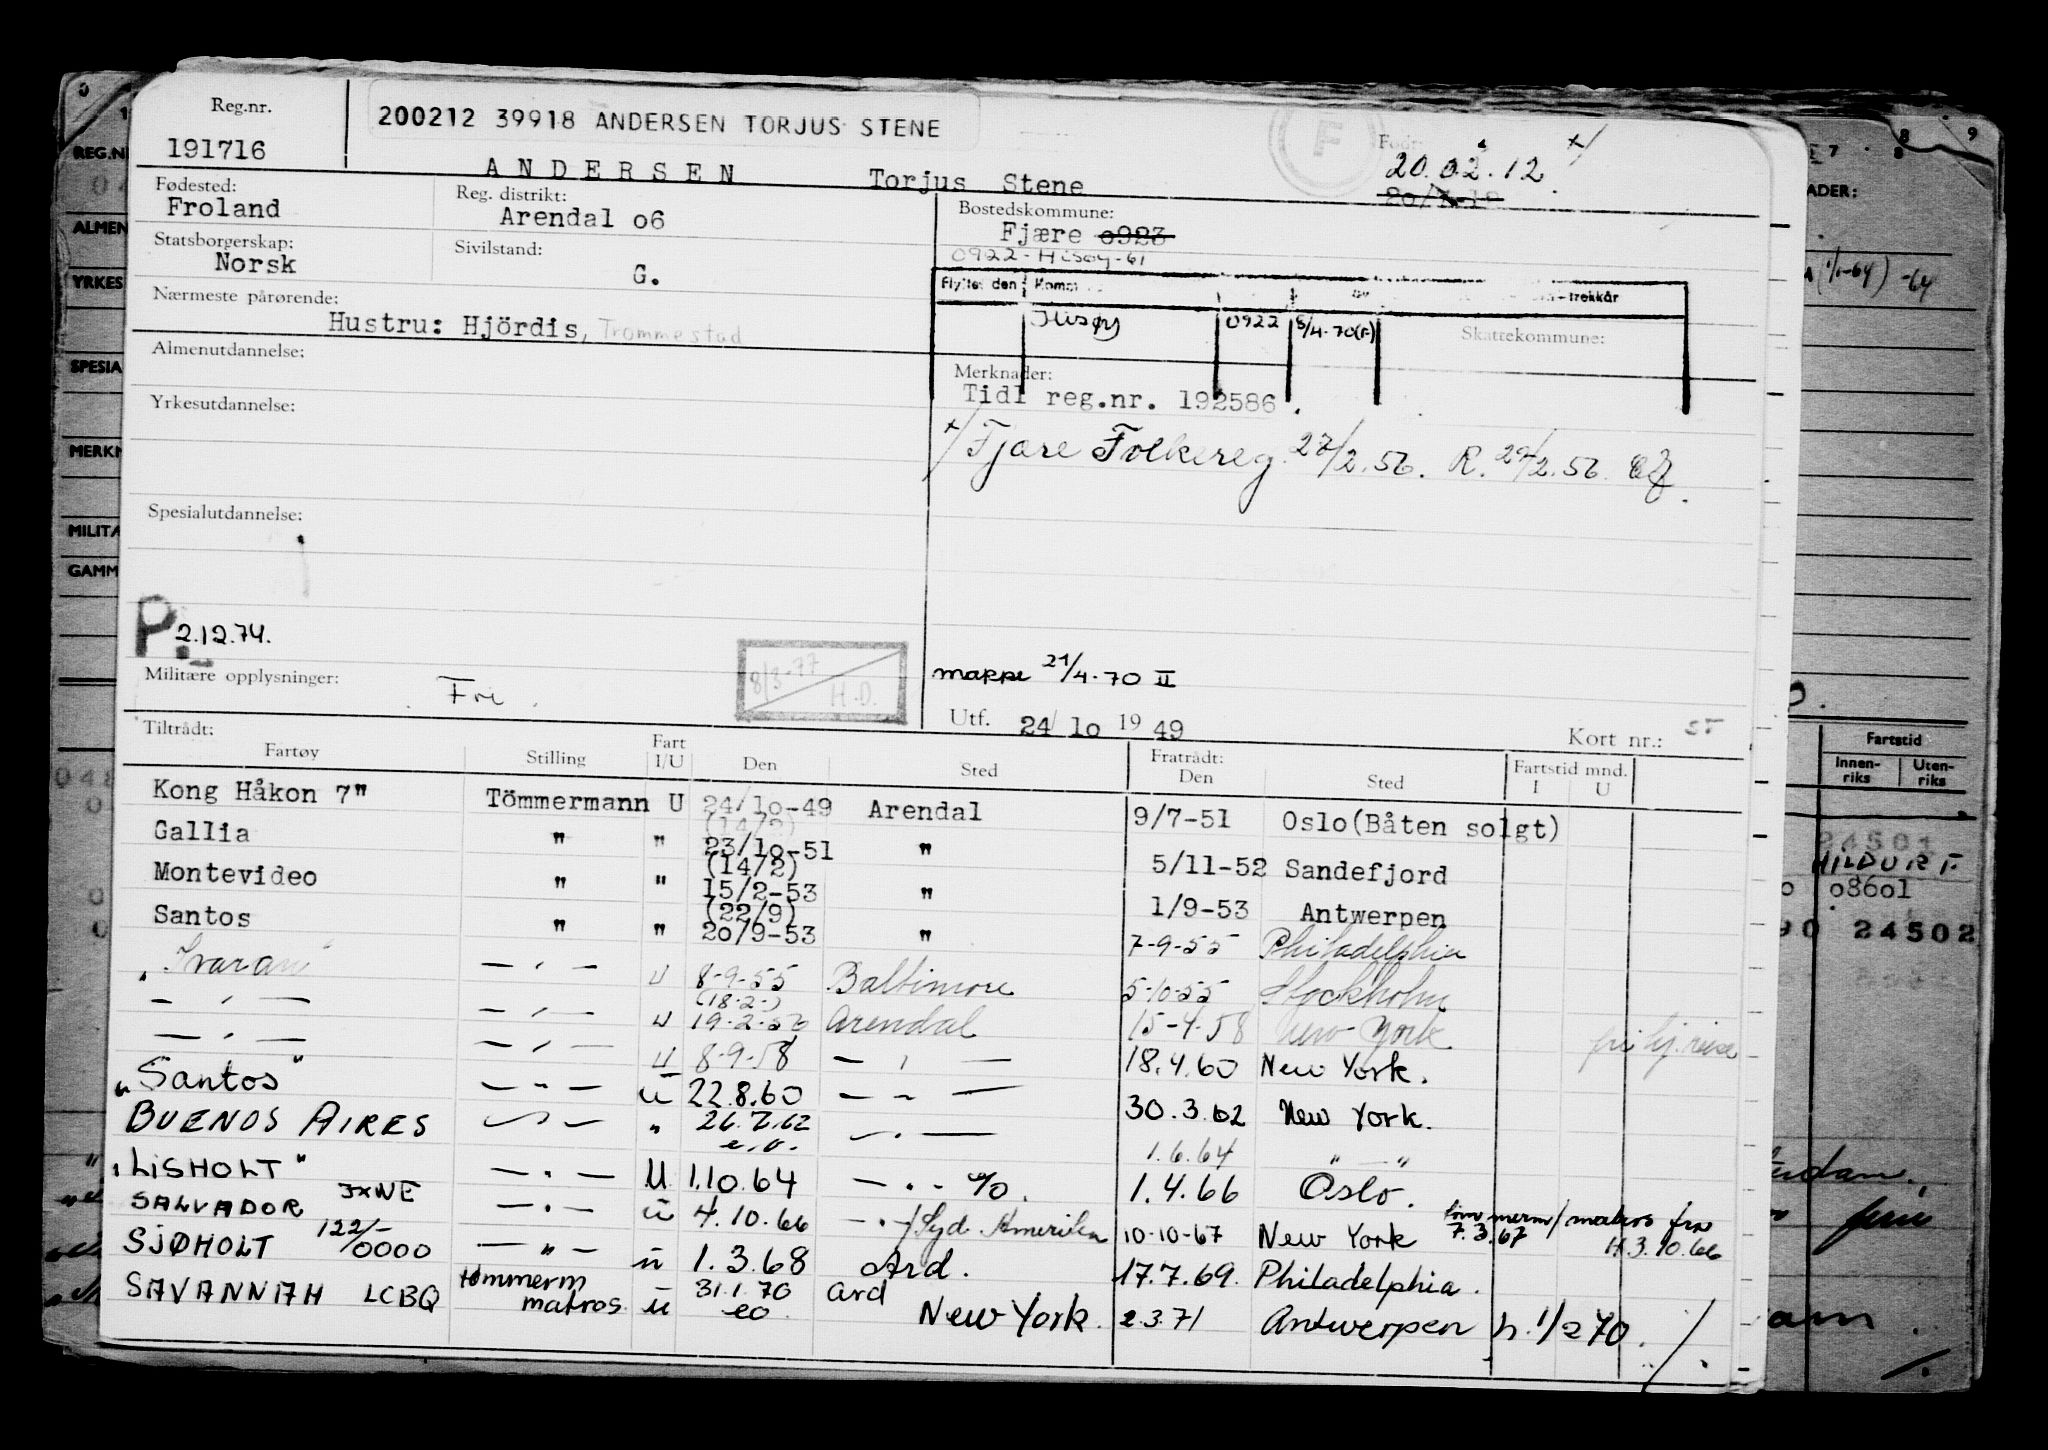 Reg.nr.
191716
200212 39918 ANDERSEN TORJUS STENE
F
Født:
20.02.12 x/
ANDERSEN Torjus Stene
Fødested:
Froland
Reg. distrikt:
Arendal o6
Bostedskommune:
Fjære o923
0922-Hisøy-61
Statsborgerskap:
Norsk
Sivilstand:
G.
Flyttet den
Hisøy 0922 5/4.70(F)
Skattekommune:
Nærmeste pårørende:
Hustru: Hjördis, Trommestad
Almenutdannelse:
Merknader:
Tidl reg.nr. 192586.
Yrkesutdannelse:
x/ Fjære Folkereg. 27/2.56. R. 29/2.56.
Spesialutdannelse:
P. 2.12.74.
8/3-77
H.D.
mappe 21/4.70 II
Militære opplysninger:
Fri.
Utf. 24/10 19 49
Kort nr.:
Tiltrådt:
Fartøy Stilling Fart I/U Den Sted Fratrådt: Den Sted Fartstid mnd. I U
Kong Håkon 7" Tömmermann U 24/10-49 Arendal 9/7-51 Oslo(Båten solgt)
(14/2)
Gallia " " 23/10-51 " 5/11-52 Sandefjord
(14/2)
Montevideo " " 15/2-53 " 1/9-53 Antwerpen
(22/9)
Santos " " 20/9-53 " 7-9-55 Philadelphia
"Ivaran" — " — U 8-9-55 Baltimore 5-10-55 Stockholm
(18-2-)
— " — — " — U 19-2-56 Arendal 15-4-58 New York fri hj. reise
— " — — " — U 8-9-58 — " — 18.4.60 New York.
"Santos" — " — U 22.8.60 — " — 30.3.62 New York.
BUENOS AIRES — " — " 26.7.62 — " — 1.6.64 " — "
e.o.
"LISHOLT" — " — U 1.10.64 — " — %. 1.4.66 Oslo.
SALVADOR JXNE — " — U 4.10.66 — " —/Syd Amerika 10-10-67 New York tømmerm/matros fra
7.3.67 H.3.10.66
SJØHOLT 122/-0000 — " — U 1.3.68 Ard. 17.7.69. Philadelphia.
SAVANNAH LCBQ tømmerm matros U 31.1.70 eo Ard New York. 2.3.71 Antwerpen h. 1/2 70.
REG.N
ALMEN
YRKES
SPESIA
MERKN
MILITÆ
GAMM
ADER:
Fartstid
Innenriks
Utenriks
24501
HILDUR F
08601
24502